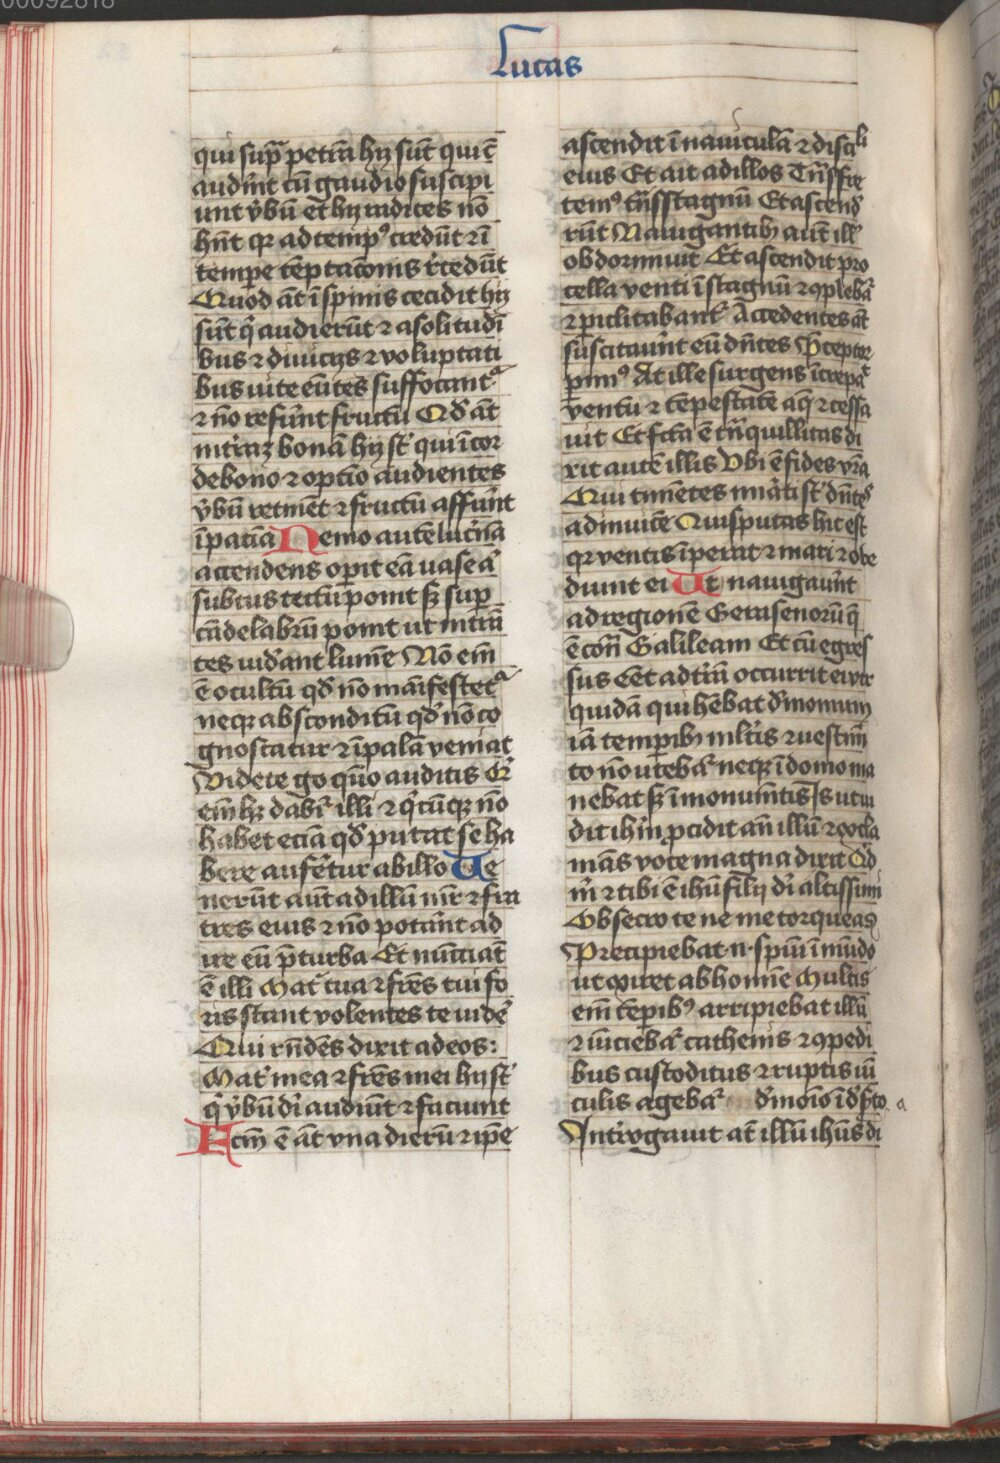 00092818
Lucas
qui sup̄ petrā hij sūt qui cū
audiūt cū gaudio suscipi
unt v̓bū et hij radices nō
hn̄t qr ad temp⁹ credūt ⁊ ī
tempe tēptacōnis r̓cedūt
Quod āt ī spinis cecidit hij
sūt q̓ audierūt ⁊ a solitudī
bus ⁊ diuicijs ⁊ voluptati
bus uite eūtes suffocant᷑
⁊ nō refūnt fructū Qd̓ āt
in t̓raꝫ bonā hij st̓ qui ī cor
de bono ⁊ optīo audientes
v̓bū retinēt ⁊ fructū affūnt
ī paciā Nemo autē lucn̓ā
accendens opit eā uase a᷑
subtus lectū ponit sꝫ sup
cādelabrū ponit ut intrā
tes uid̓ant lumē Nō em̄
ē ocultū qd̓ nō maīfestet᷑
neqꝫ absconditū qd̓ nō co
gnoscatur ⁊ ī palā veniat
Videte go quō auditis Q̓
em̄ hꝫ dabit᷑ illi ⁊ q̓cūqꝫ nō
habet eciā qd̓ putat se ha
bere aufētur ab illo Ue
nerūt aūt ad illū mr̄ ⁊ fra
tres euis ⁊ nō potāt ad
ire eū p̄ turba Et nūcciat̄
ē illi Mat᷑ tua ⁊ frēs tui fo
ris stant volentes te uidē
Qui rn̄dēs dixit ad eos:
Mat᷑ mea ⁊ frēs mei hij st̓
q̓ v̓bū dī audiūt ⁊ faciunt
Fcm̄ ē āt vna dierū ⁊ ip̄e
ascendit ī nauiculā ⁊ discili
eius Et ait ad illos Tn̄sfre
tem⁹ tn̄s stagnū Et ascend̓
rūt Nauigantibꝫ autē ill̓
obdormiuit Et ascendit pro
cella venti ī stagnū ⁊ ꝯplebā
⁊ piclitabant᷑ Accedentes āt
suscitauit eū dn̄tes P̄ceptor
pim⁹ At ille surgens īcrepat̄
ventū ⁊ tēpestatē aq̄ ⁊ cessa
uit Et fcta ē trā̄quillitas di
xit autē illis Vbi ē fides vr̄a
Qui timētes mirāti st̓ dn̄tes
ad inuicē Quis putas hic est
qr ventis īperat ⁊ mari ⁊ obe
diunt ei Ut nauigaūnt
ad regionē Gerasenorū q̄
ē con̄ Galileam Et cū egres
sus eēt ad tr̄m̄ occurrit ei vir
quidā qui hēbat dm̓onium
iā tempibꝫ ml̓tis ⁊ uestim̄
to nō utebat᷑ neqꝫ ī domo ma
nebat sꝫ ī monum̄tis Js ut ui
dit ihm̄ ꝓcidit an̄ illū ⁊ excla
mās voce magna dixit Qd̓
m̓ ⁊ tibi ē ihū filij dī altissimi
Obsecro te ne me torqueas
Precipiebat·n·spiū īmūdo
ut exiret ab homīe Multis
em̄ tēpibꝰ arripiebat illū
⁊ īuiciebat᷑ cathenis ⁊ ꝯpedi
bus custoditus ⁊ ruptis uī
culis agebat᷑ a dm̓oīo ī ds̓to
Jnt̓rogauit āt illū ihūs di